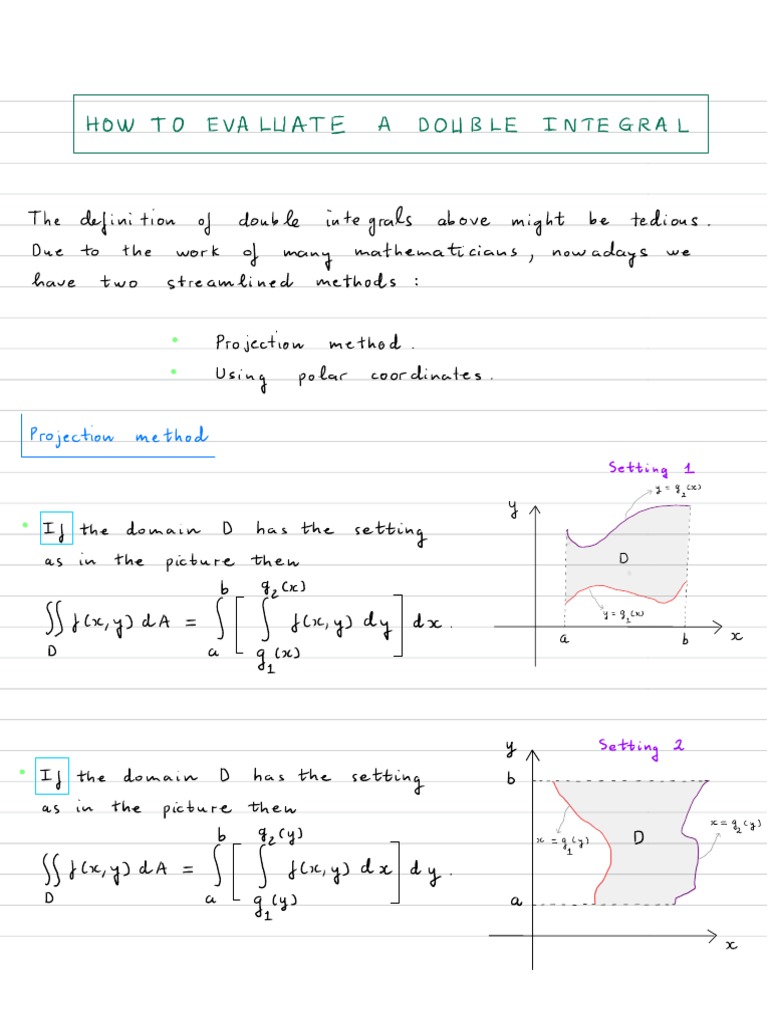 HOW TO EVALUATE A DOUBLE INTEGRAL
The definition of double integrals above might be tedious.
Due to the work of many mathematicians, nowadays we
have two streamlined methods :
• Projection method.
• Using polar coordinates.
Projection method
Setting 1
y = g₂(x)
y
• If the domain D has the setting
as in the picture then
D
∬_D f(x,y) dA = ∫_a^b [ ∫_{g₁(x)}^{g₂(x)} f(x,y) dy ] dx.
y = g₁(x)
a b x
Setting 2
y
b
• If the domain D has the setting
as in the picture then
x = g₂(y)
x = g₁(y)
D
∬_D f(x,y) dA = ∫_a^b [ ∫_{g₁(y)}^{g₂(y)} f(x,y) dx ] dy.
a
x